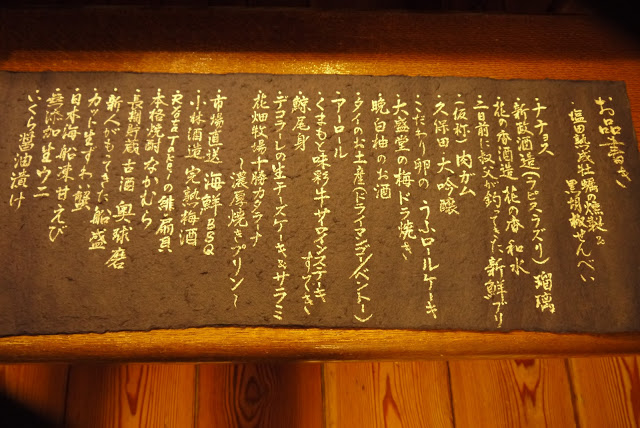 お品書き
・塩田熟成牡蠣の燻製&
黒胡椒せんべい
・ナチョス
・新政酒造(ラピスラズリ) 瑠璃
・花の香酒造 花の香 和水
・二日前に叔父が釣ってきた新鮮ブリ
・(仮釘) 肉ガム
・久保田 大吟醸
・こだわり卵の うふロールケーキ
・大盛堂の梅ドラ焼き
・晩白柚のお酒
・タイのお土産(ドライマンゴー/ベントー)
・アーロール
・くまもと味彩牛サロインステーキ
すてーき
・鯨尾身
・デコラーレの生チーズケーキ&サラミ
・花畑牧場 十勝カタラーナ
〜濃厚焼きプリン〜
・市場直送 海鮮BBQ
・小林酒造 完熟梅酒
・ROBATAREAの緋扇貝
・本格焼酎 なかむら
・長期貯蔵 古酒 奥球磨
・新人がもってきた船盛
・カナダ生ずわい蟹
・日本海船凍甘えび
・無添加生ウニ
・いくら醤油漬け